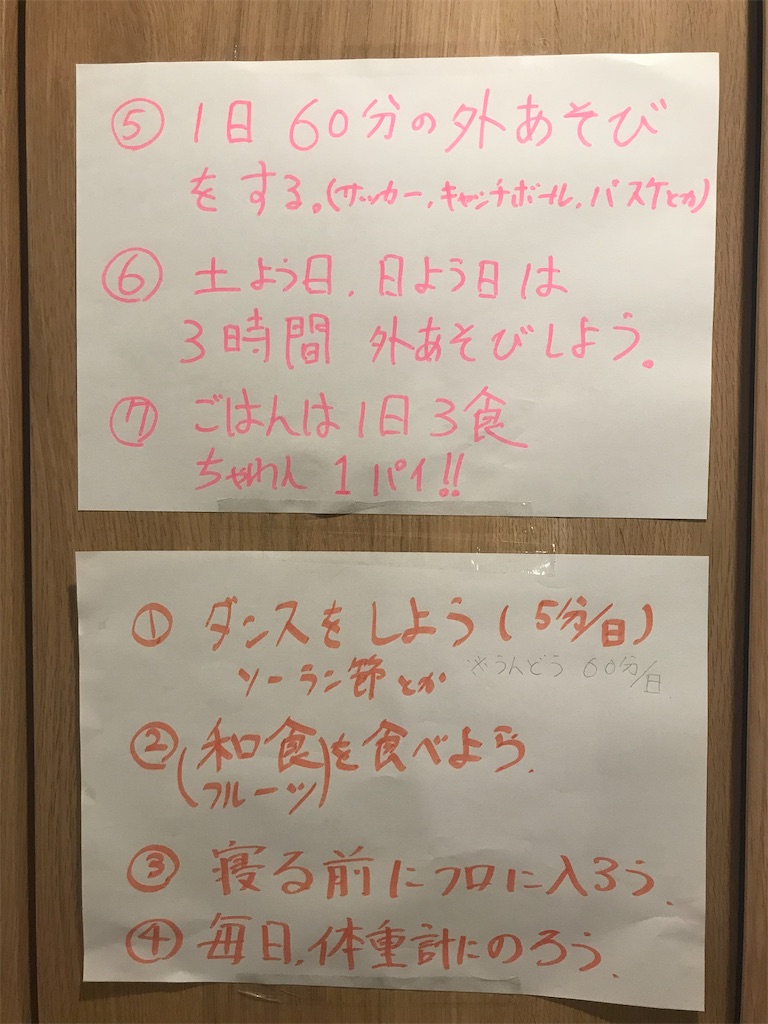 ⑤ 1日 60分の外あそび
をする。(サッカー、キャッチボール、バスケとか)
⑥ 土よう日、日よう日は
3時間 外あそびしよう。
⑦ ごはんは1日3食
ちゃわん 1パイ!!
① ダンスをしよう(5分/日)
ソーラン節とか ※うんどう 60分/日
② (和食)を食べよう。
(フルーツ)
③ 寝る前にフロに入ろう。
④ 毎日、体重計にのろう。